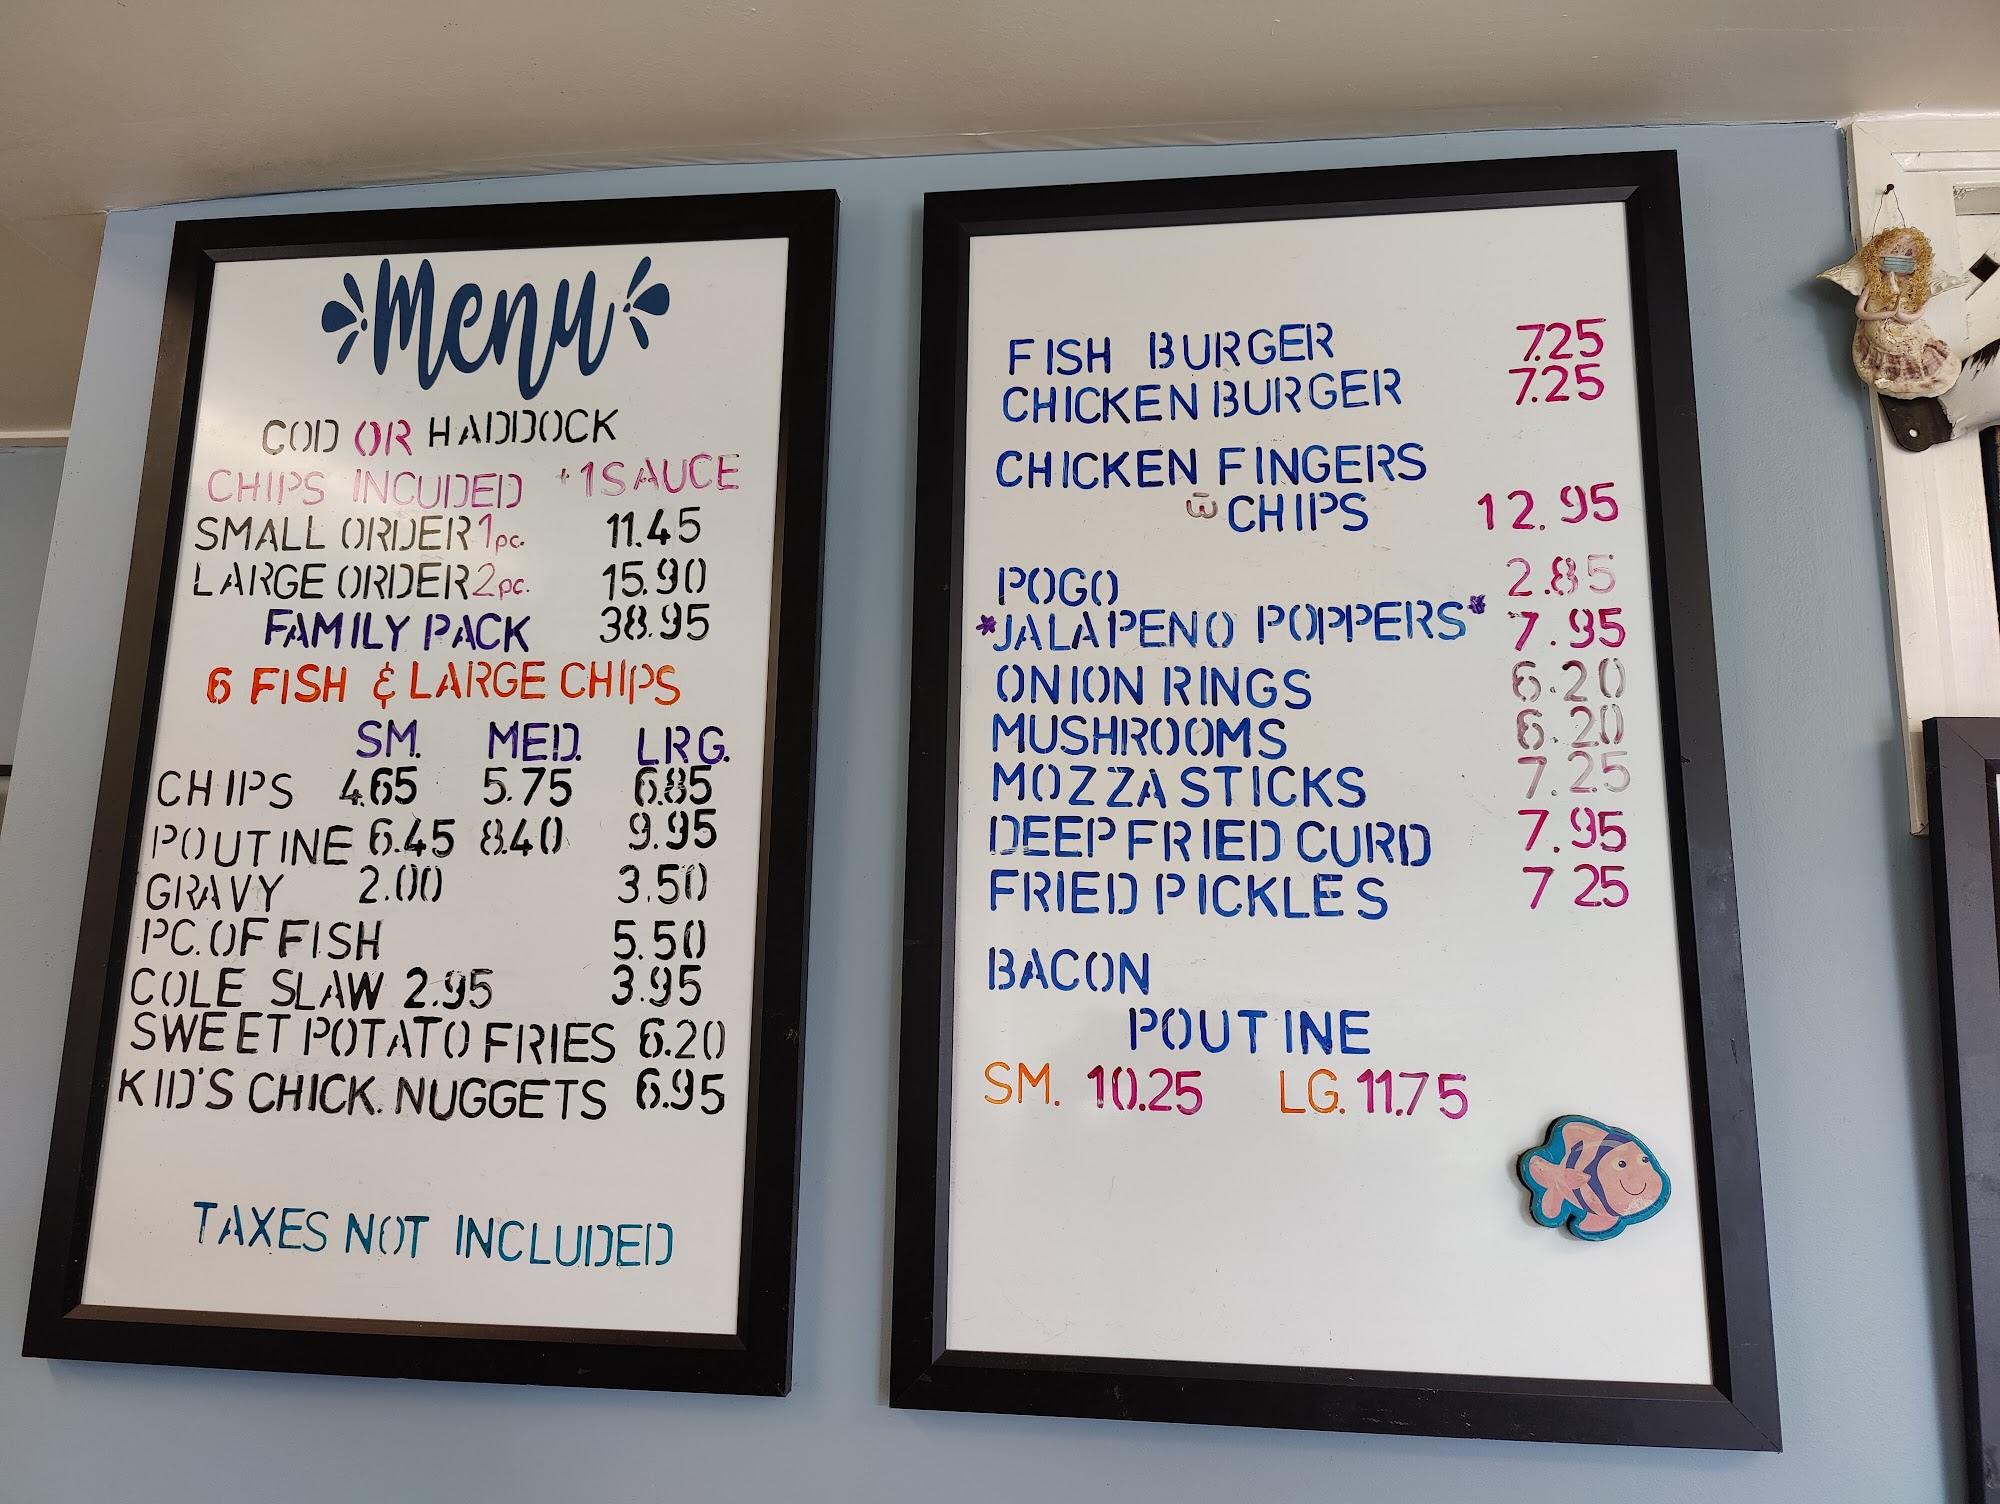 Menu
COD OR HADDOCK
CHIPS INCUDED +1 SAUCE
SMALL ORDER 1pc. 11.45
LARGE ORDER 2pc. 15.90
FAMILY PACK 38.95
6 FISH & LARGE CHIPS
SM. MED. LRG.
CHIPS 4.65 5.75 6.85
POUTINE 6.45 8.40 9.95
GRAVY 2.00 3.50
PC. OF FISH 5.50
COLE SLAW 2.95 3.95
SWEET POTATO FRIES 6.20
KID'S CHICK. NUGGETS 6.95
TAXES NOT INCLUDED
FISH BURGER 7.25
CHICKEN BURGER 7.25
CHICKEN FINGERS
w̄ CHIPS 12.95
POGO 2.85
*JALAPENO POPPERS* 7.95
ONION RINGS 6.20
MUSHROOMS 6.20
MOZZA STICKS 7.25
DEEP FRIED CURD 7.95
FRIED PICKLES 7 25
BACON
POUTINE
SM. 10.25 LG. 11.75